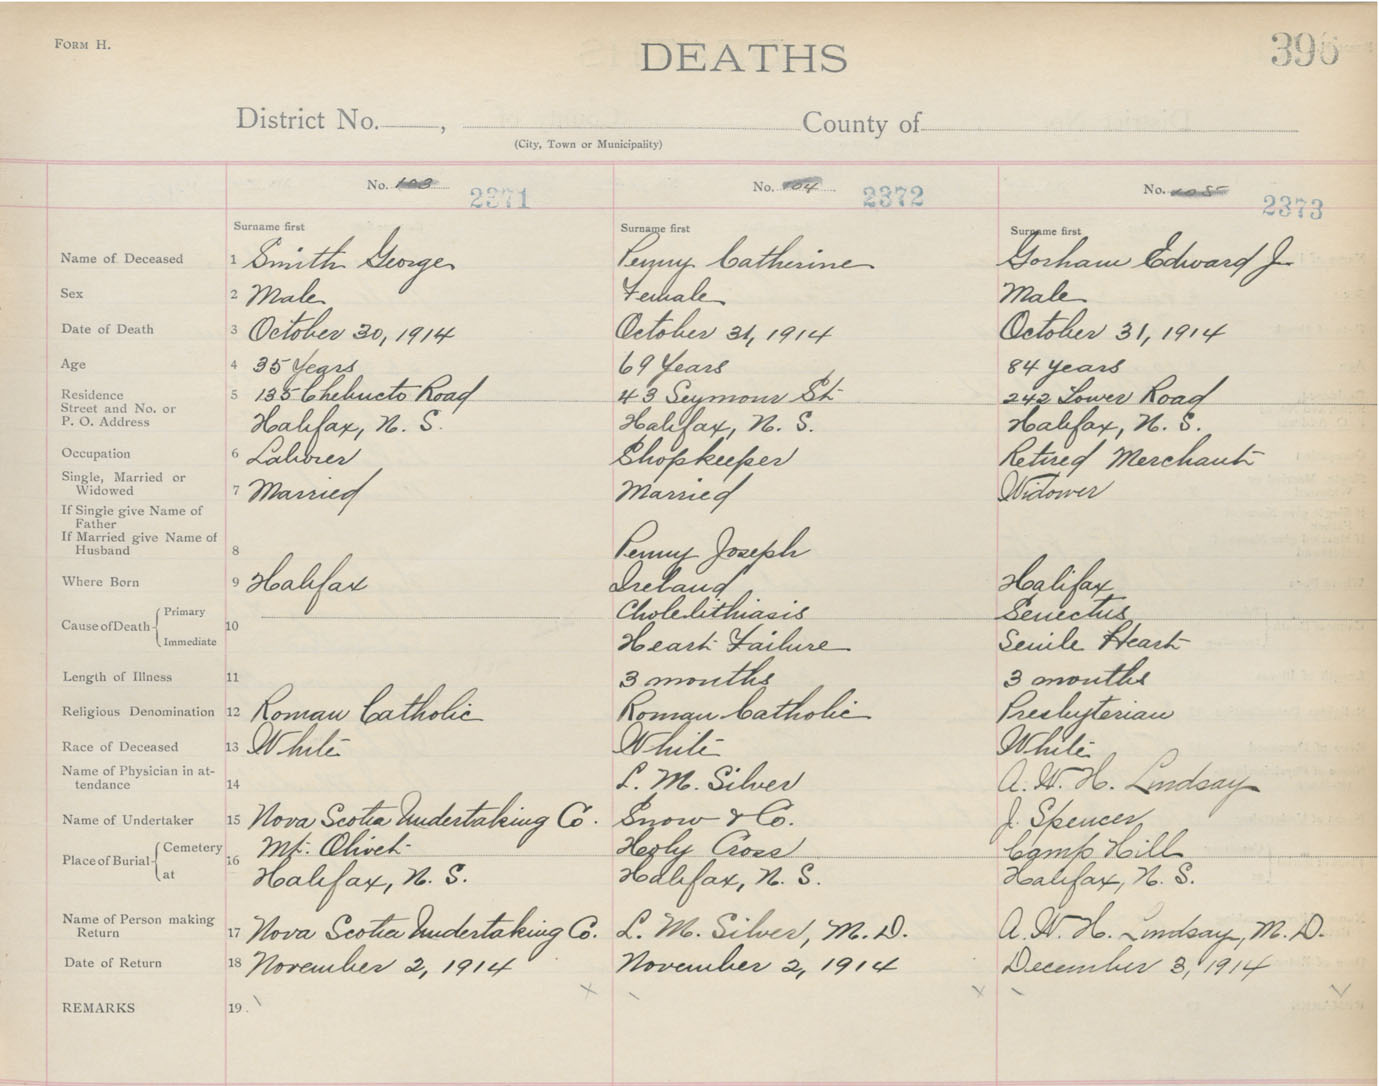 FORM H.
DEATHS
396
District No. , County of
(City, Town or Municipality)
No. 103 2371 No. 104 2372 No. 105 2373
Surname first Surname first Surname first
Name of Deceased 1 Smith George Penny Catherine Gorham Edward J.
Sex 2 Male Female Male
Date of Death 3 October 30, 1914 October 31, 1914 October 31, 1914
Age 4 35 Years 69 Years 84 years
Residence 5 135 Chebucto Road 43 Seymour St. 242 Lower Road
Street and No. or
P. O. Address Halifax, N. S. Halifax, N. S. Halifax, N. S.
Occupation 6 Laborer Shopkeeper Retired Merchant
Single, Married or
Widowed 7 Married Married Widower
If Single give Name of
Father
If Married give Name of
Husband 8 Penny Joseph
Where Born 9 Halifax Ireland Halifax
Cause of Death Primary 10 Cholelithiasis Senectus
Immediate Heart Failure Senile Heart
Length of Illness 11 3 months 3 months
Religious Denomination 12 Roman Catholic Roman Catholic Presbyterian
Race of Deceased 13 White White White
Name of Physician in at-
tendance 14 L. M. Silver A. W. H. Lindsay
Name of Undertaker 15 Nova Scotia Undertaking Co. Snow & Co. J. Spencer
Place of Burial Cemetery 16 Mt. Olivet Holy Cross Camp Hill
at Halifax, N. S. Halifax, N. S. Halifax, N. S.
Name of Person making
Return 17 Nova Scotia Undertaking Co. L. M. Silver, M. D. A. W. H. Lindsay, M. D.
Date of Return 18 November 2, 1914 November 2, 1914 December 3, 1914
REMARKS 19